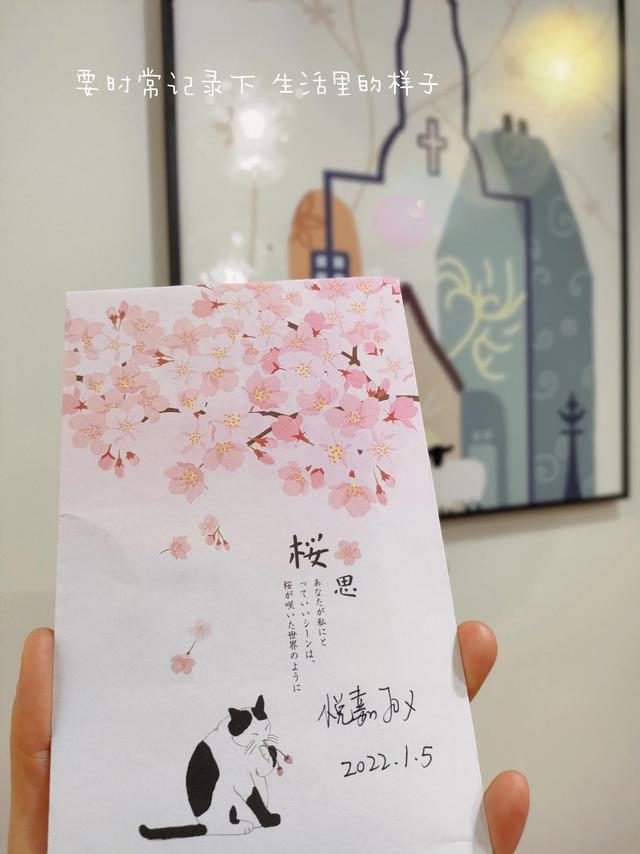 要时常记录下 生活里的样子
桜
思
あなたが私にと
っていいシーンは、
桜が咲いた世界のように
悦嘉
2022.1.5